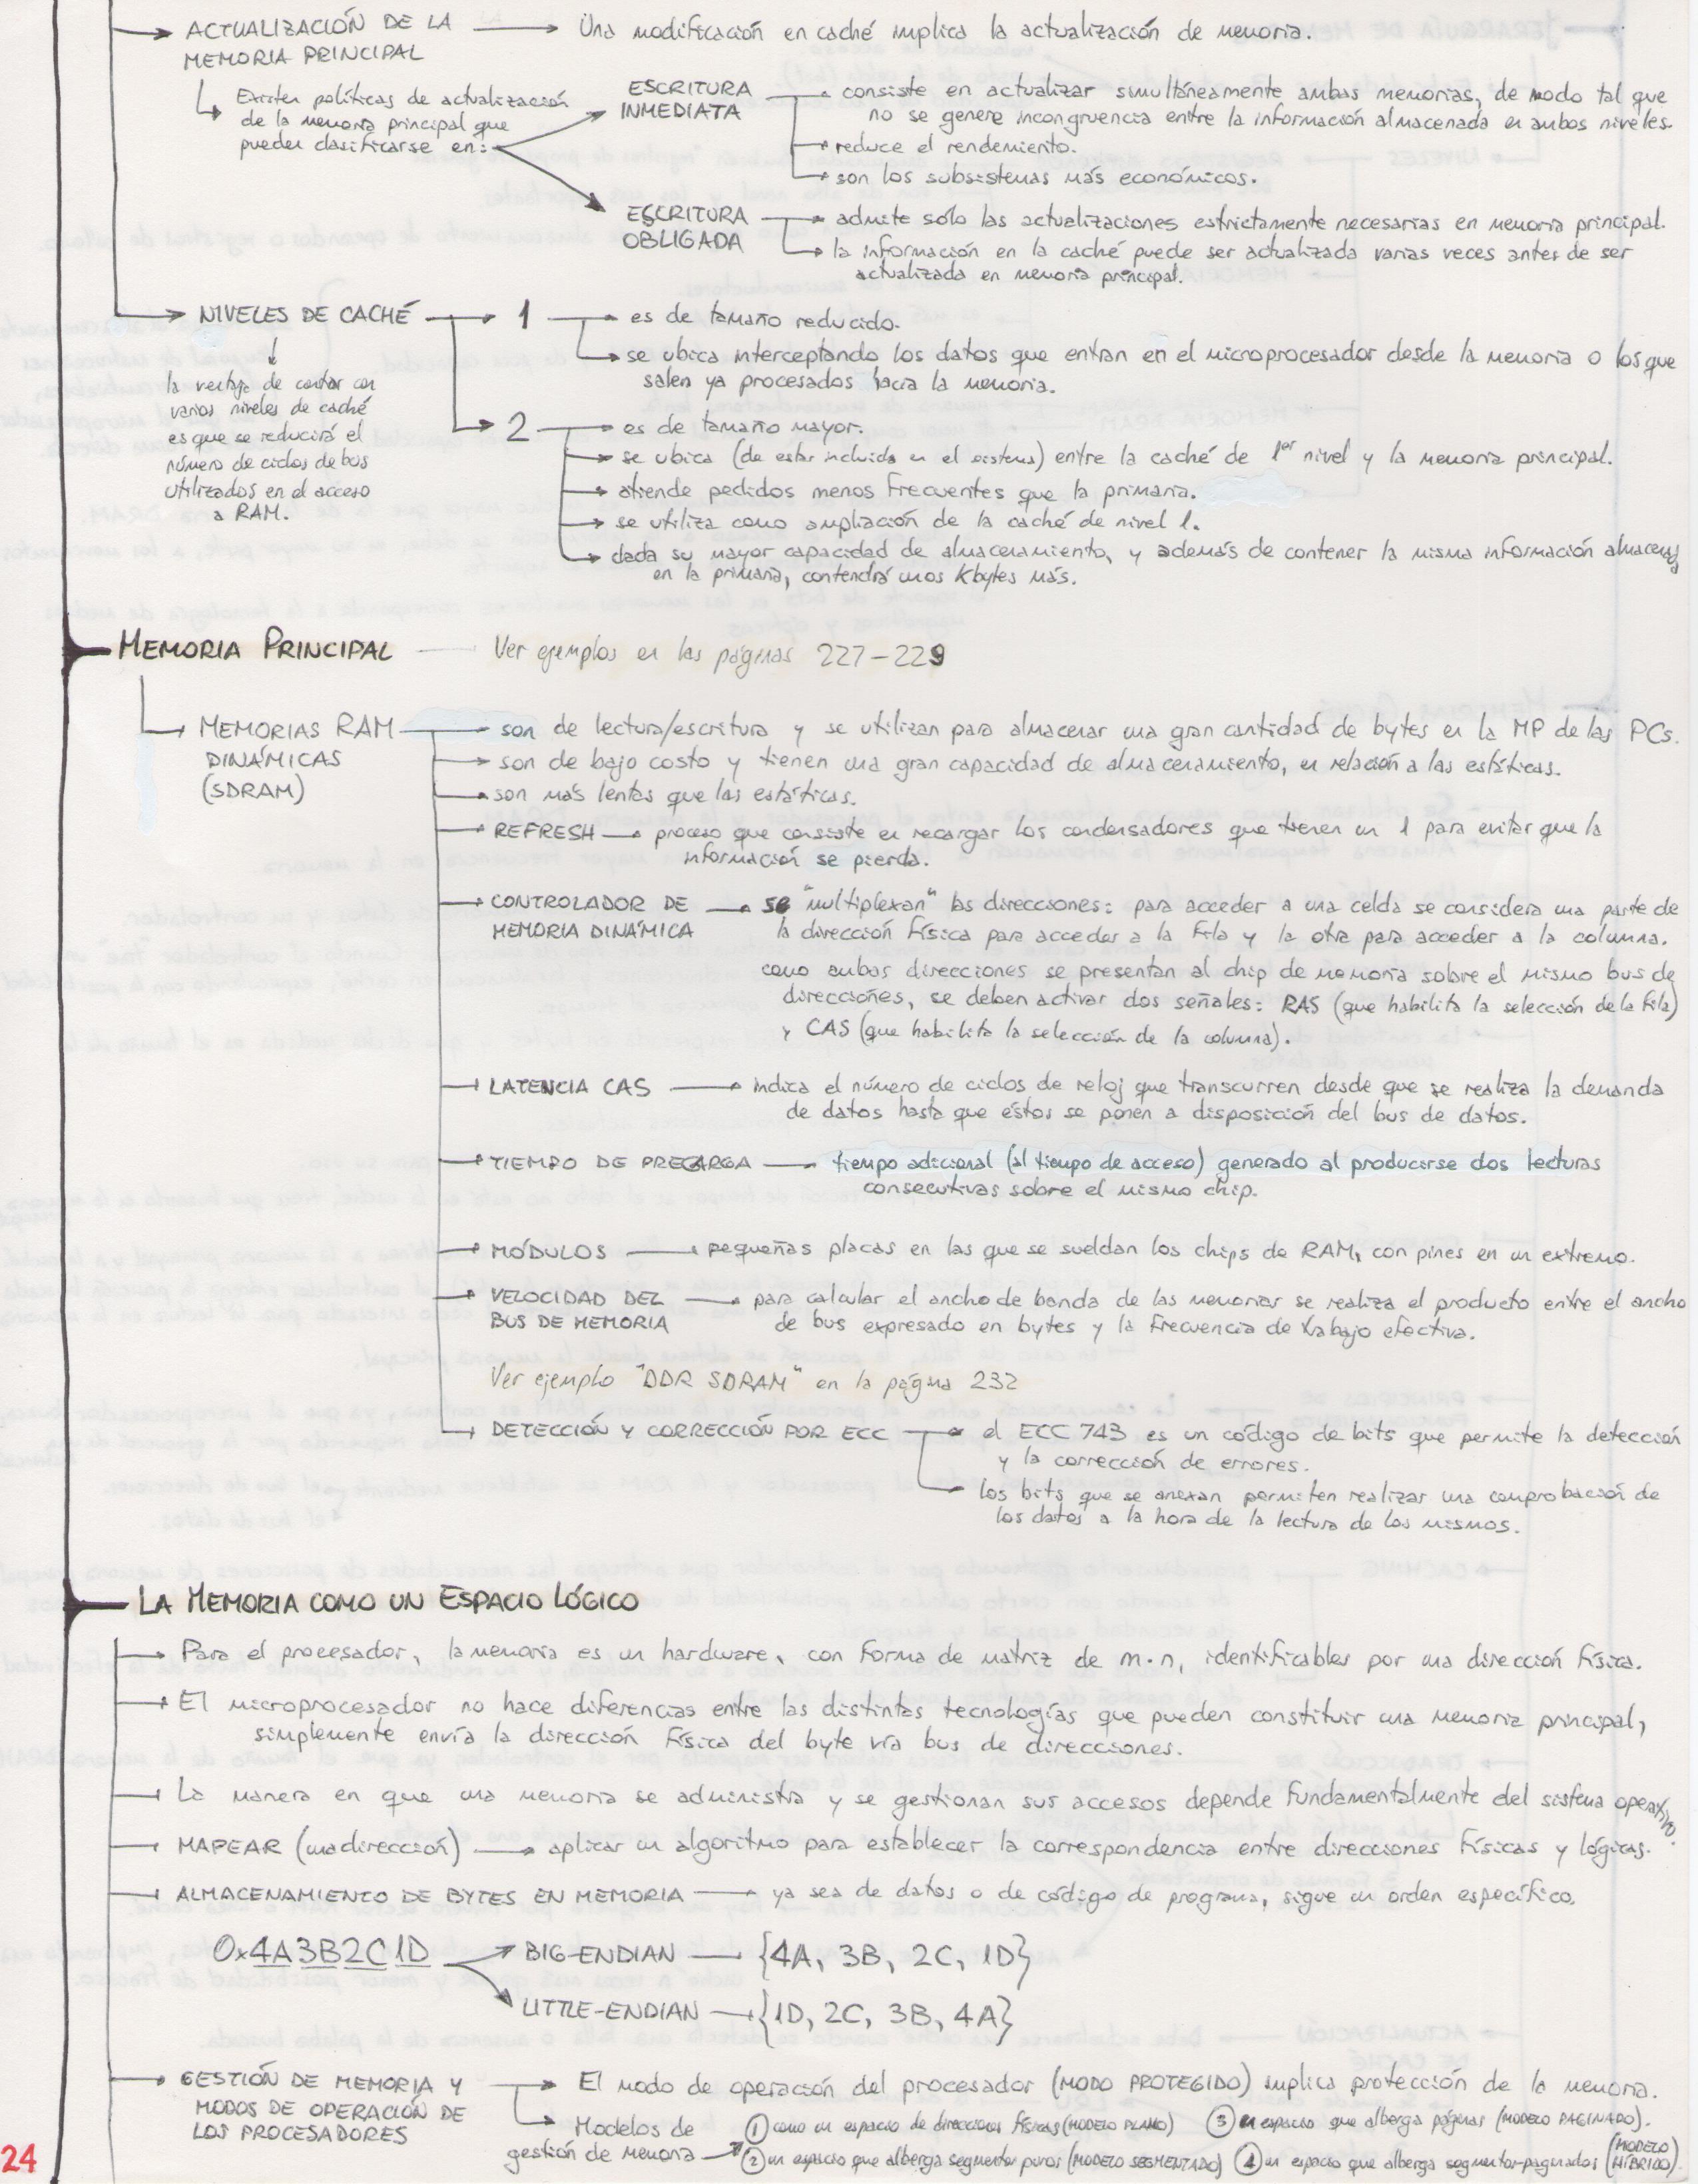 ACTUALIZACIÓN DE LA → Una modificación en caché implica la actualización de memoria.
MEMORIA PRINCIPAL
Existen políticas de actualización
de la memoria principal que
pueden clasificarse en:
ESCRITURA
INMEDIATA
consiste en actualizar simultáneamente ambas memorias, de modo tal que
no se genere incongruencia entre la información almacenada en ambos niveles.
reduce el rendimiento.
son los subsistemas más económicos.
ESCRITURA
OBLIGADA
admite sólo las actualizaciones estrictamente necesarias en memoria principal.
la información en la caché puede ser actualizada varias veces antes de ser
actualizada en memoria principal.
NIVELES DE CACHÉ
la ventaja de contar con
varios niveles de caché
es que se reducirá el
número de ciclos de bus
utilizados en el acceso
a RAM.
1 → es de tamaño reducido.
se ubica interceptando los datos que entran en el microprocesador desde la memoria o los que
salen ya procesados hacia la memoria.
2 → es de tamaño mayor.
se ubica (de estar incluida en el sistema) entre la caché de 1er nivel y la memoria principal.
atiende pedidos menos frecuentes que la primaria.
se utiliza como ampliación de la caché de nivel 1.
dada su mayor capacidad de almacenamiento, y además de contener la misma información almacenada
en la primaria, contendrá unos Kbytes más.
MEMORIA PRINCIPAL — Ver ejemplos en las páginas 227-229
MEMORIAS RAM
DINÁMICAS
(SDRAM)
son de lectura/escritura y se utilizan para almacenar una gran cantidad de bytes en la MP de las PCs.
son de bajo costo y tienen una gran capacidad de almacenamiento, en relación a las estáticas.
son más lentas que las estáticas.
REFRESH → proceso que consiste en recargar los condensadores que tienen un 1 para evitar que la
información se pierda.
CONTROLADOR DE
MEMORIA DINÁMICA
se "multiplexan" las direcciones: para acceder a una celda se considera una parte de
la dirección física para acceder a la fila y la otra para acceder a la columna.
como ambas direcciones se presentan al chip de memoria sobre el mismo bus de
direcciones, se deben activar dos señales: RAS (que habilita la selección de la fila)
y CAS (que habilita la selección de la columna).
LATENCIA CAS → indica el número de ciclos de reloj que transcurren desde que se realiza la demanda
de datos hasta que éstos se ponen a disposición del bus de datos.
TIEMPO DE PRECARGA → tiempo adicional (al tiempo de acceso) generado al producirse dos lecturas
consecutivas sobre el mismo chip.
MÓDULOS → pequeñas placas en las que se sueldan los chips de RAM, con pines en un extremo.
VELOCIDAD DEL
BUS DE MEMORIA
para calcular el ancho de banda de las memorias se realiza el producto entre el ancho
de bus expresado en bytes y la frecuencia de trabajo efectiva.
Ver ejemplo "DDR SDRAM" en la página 232
DETECCIÓN Y CORRECCIÓN POR ECC → el ECC 743 es un código de bits que permite la detección
y la corrección de errores.
los bits que se anexan permiten realizar una comprobación de
los datos a la hora de la lectura de los mismos.
LA MEMORIA COMO UN ESPACIO LÓGICO
Para el procesador, la memoria es un hardware, con forma de matriz de m·n, identificables por una dirección física.
El microprocesador no hace diferencias entre las distintas tecnologías que pueden constituir una memoria principal,
simplemente envía la dirección física del byte vía bus de direcciones.
La manera en que una memoria se administra y se gestionan sus accesos depende fundamentalmente del sistema operativo.
MAPEAR (una dirección) → aplicar un algoritmo para establecer la correspondencia entre direcciones físicas y lógicas.
ALMACENAMIENTO DE BYTES EN MEMORIA → ya sea de datos o de código de programa, sigue un orden específico.
0x4A3B2C1D
BIG-ENDIAN → {4A, 3B, 2C, 1D}
LITTLE-ENDIAN → {1D, 2C, 3B, 4A}
GESTIÓN DE MEMORIA Y
MODOS DE OPERACIÓN DE
LOS PROCESADORES
El modo de operación del procesador (MODO PROTEGIDO) implica protección de la memoria.
Modelos de
gestión de memoria
① como un espacio de direcciones físicas (MODELO PLANO)
② un espacio que alberga segmentos puros (MODELO SEGMENTADO)
③ un espacio que alberga páginas (MODELO PAGINADO).
④ un espacio que alberga segmentos-paginados (MODELO HÍBRIDO).
24